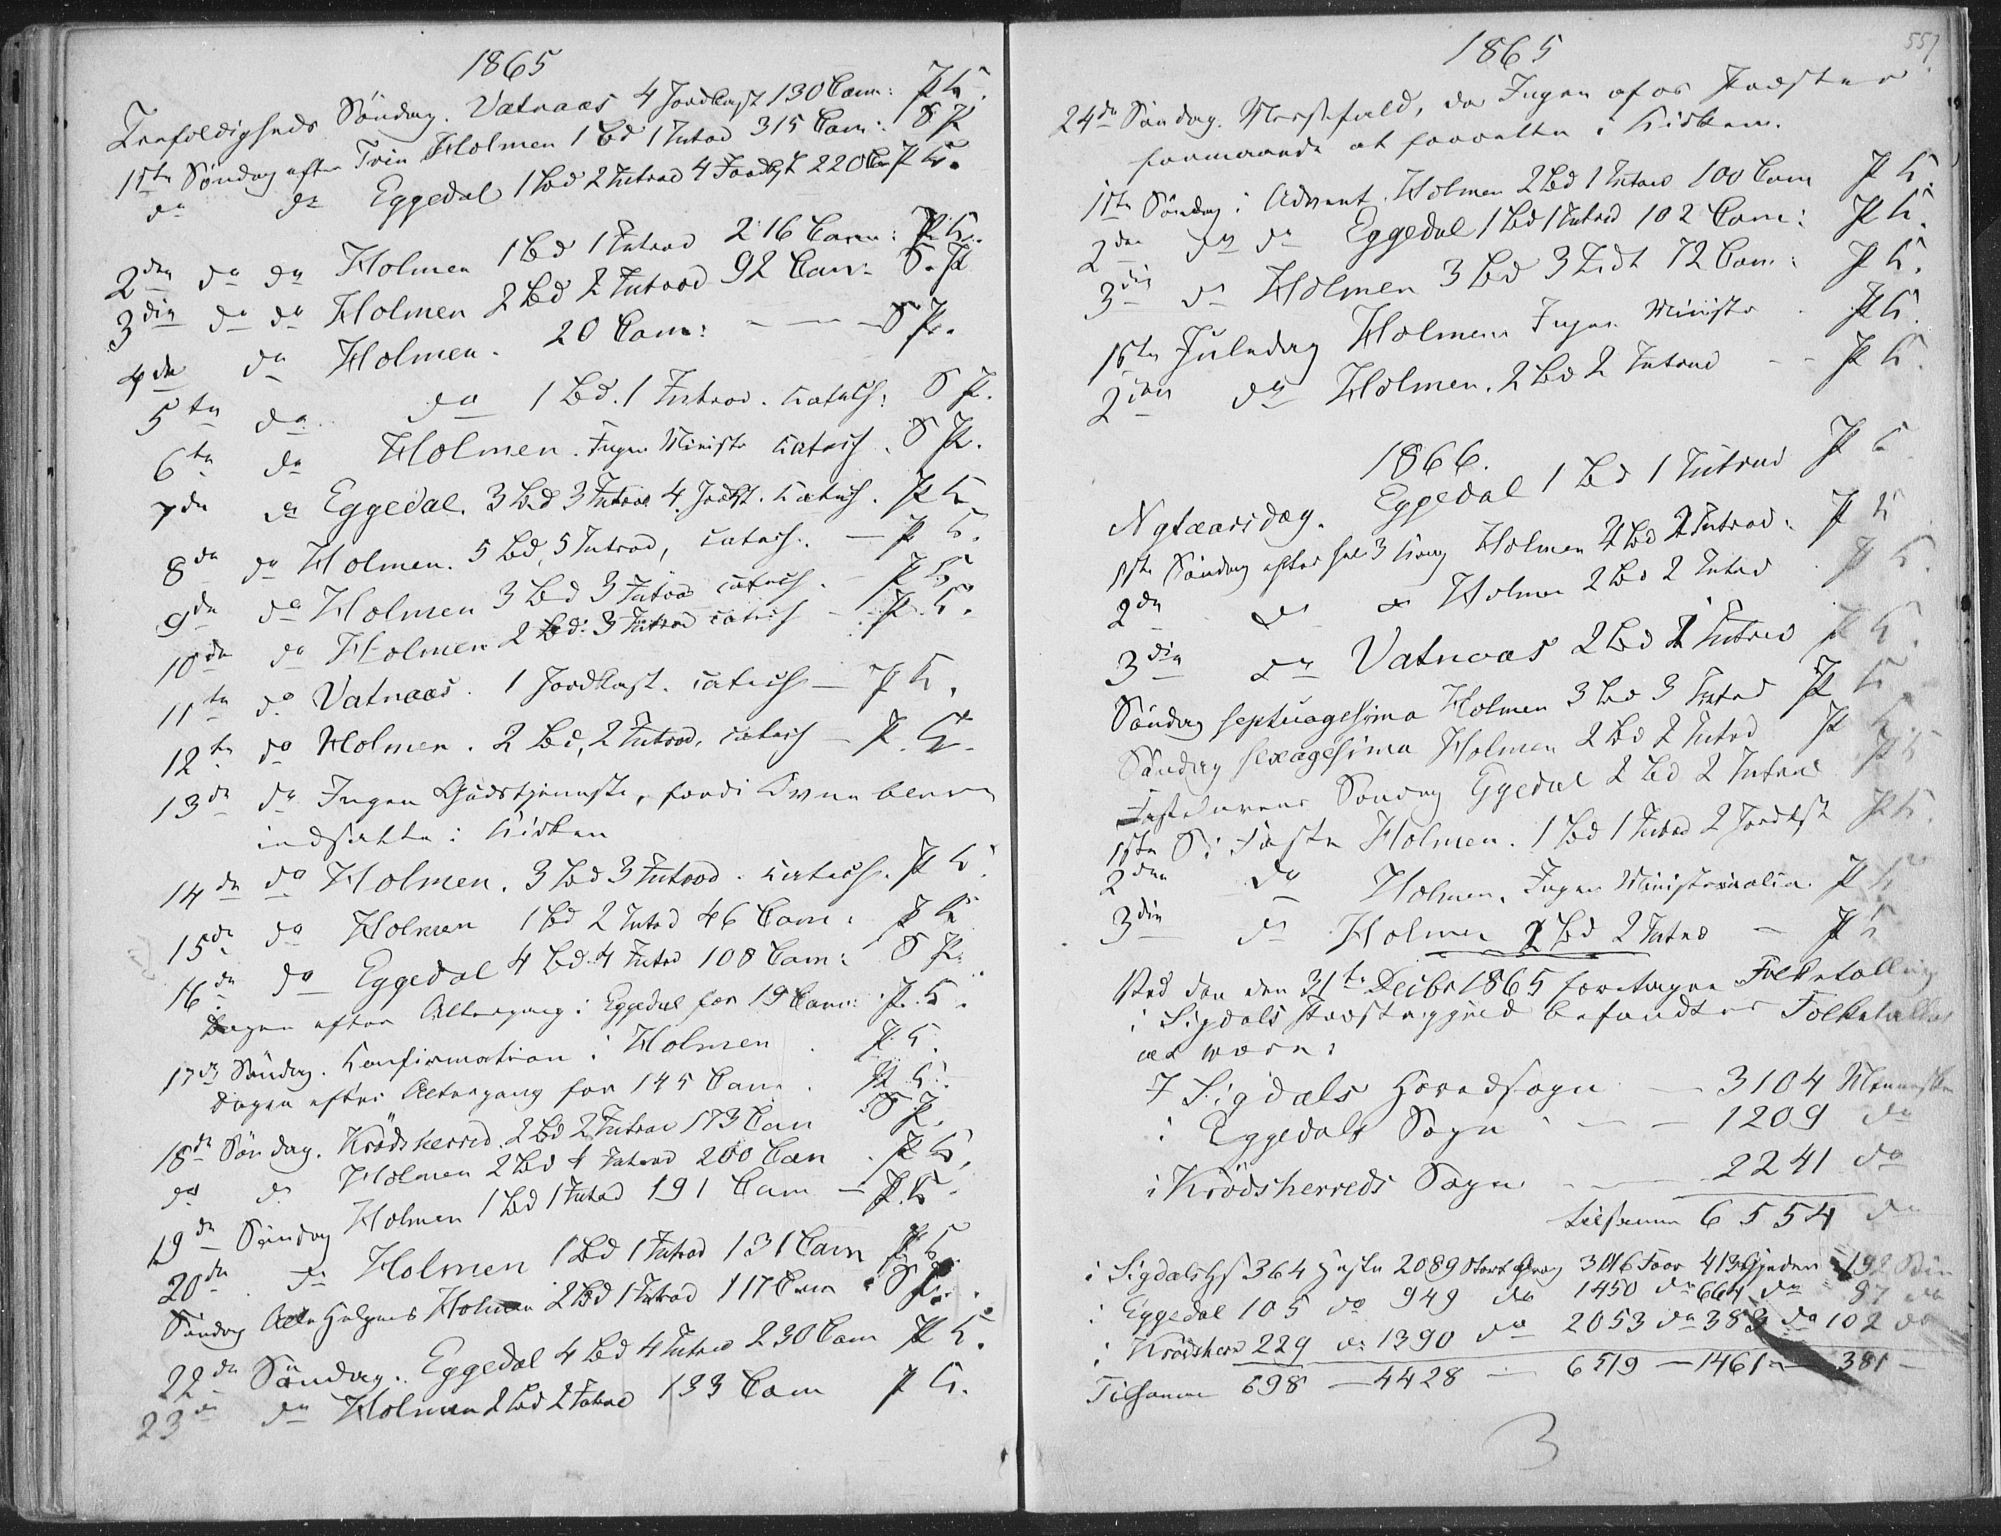 1865
Trefoldigheds Söndag. Vatnaas 4 Jordkast 130 Com: P K.
1ste Söndag efter Trin Holmen 1 Bd 1 Introd 315 Com: S P
do do Eggedal 1 Bd 2 Introd 4 Jordkst 220 Com P K.
2den do do Holmen 1 Bd 1 Introd 216 Com: P. K.
3die do do Holmen 2 Bd 2 Introd 92 Com: S. P
4de do Holmen. 20 Com: — — — S P.
5te do do 1 Bd. 1 Introd. Catech: S P.
6te do Holmen. Ingen Ministr Catech. S P.
7de do Eggedal. 3 Bd 3 Introd 4 Jordkst. Catech. P K
8de do Holmen. 5 Bd, 5 Introd, Catech. — P K.
9de do Holmen 3 Bd 3 Introd Catech. — P K.
10de do Holmen 2 Bd: 3 Introd Catech — P. K.
11te do Vatnaas. 1 Jordkast. Catech — P K.
12te do Holmen. 2 Bd, 2 Introd, Catech — P. K.
13de do Ingen Gudstjeneste, fordi Ovnene bleve
indsatte i Kirken
14de do Holmen. 3 Bd 3 Introd. Catech. P K.
15de do Holmen 1 Bd 2 Introd 46 Com: P K
16de do Eggedal 4 Bd. 4 Introd 108 Com: S P.
Dagen efter Altergang i Eggedal for 19 Com: P. K.
17de Söndag. Konfirmation i Holmen. P. K.
Dagen efter Altergang for 145 Com. P K.
18de Söndag. Krödsherred. 2 Bd 2 Introd 173 Com S P.
do do Holmen 2 Bd 1 Introd 200 Com. P K.
19de Söndag Holmen 1 Bd 1 Introd 191 Com — P. K.
20de do Holmen 1 Bd 1 Introd 131 Com P K.
Söndag Alle Helgens Holmen 2 Bd 1 Introd 117 Com S P.
22de Söndag. Eggedal 4 Bd 4 Introd 230 Com P K.
23de do Holmen 2 Bd 2 Introd 133 Com P K.
1865
557
24de Söndag. Messefald, da Ingen af os Præster
formaaede at forrette i Kirken.
1ste Söndag i Advent. Holmen 2 Bd 1 Introd 100 Com P K.
2den do do Eggedal 1 Bd 1 Introd 102 Com: P K.
3die do Holmen 3 Bd 3 Itdt 72 Com: P K.
1ste Juledag Holmen Ingen Ministr. P K.
2den do Holmen. 2 Bd 2 Introd — — P K.
1866.
Nytaarsdag. Eggedal 1 Bd 1 Introd P K
1ste Söndag efter hel 3 Kong Holmen 2 Bd 2 Introd. P K
2den do do Holmen 2 Bd 2 Introd. P K.
3die do Vatnaas 2 Bd 2 Introd P K.
Söndag septuagesima Holmen 3 Bd 3 Introd P K
Söndag sexagesima Holmen 2 Bd 2 Introd P K.
Fastelavens Söndag Eggedal 2 Bd 2 Introd P K
1ste S: i Faste Holmen. 1 Bd 1 Introd 2 Jordkst P K.
2den do Holmen. Ingen Ministerialia. P K
3die do Holmen 2 Bd 2 Introd — P K
Ved den den 31te Decbr 1865 foretagne Folketælling
i Sigdals Præstegjeld befandtes Folketallet
at være:
I Sigdals Hovedsogn — 3104 Mennesker
i Eggedals Sogn — — 1209 do
i Krödsherreds Sogn — — 2241 do
tilsammen 6554 do
i Sigdals HS 364 Heste 2089 Stort Qvæg 3016 Faar 413 Gjeder 192 Sviin
i Eggedal 105 do 949 do 1450 do 664 do 87 do
i Krödsherr 229 do 1390 do 2053 do 383 do 102 do
Tilsammen 698 — 4428 — 6519 — 1461 — 381 —